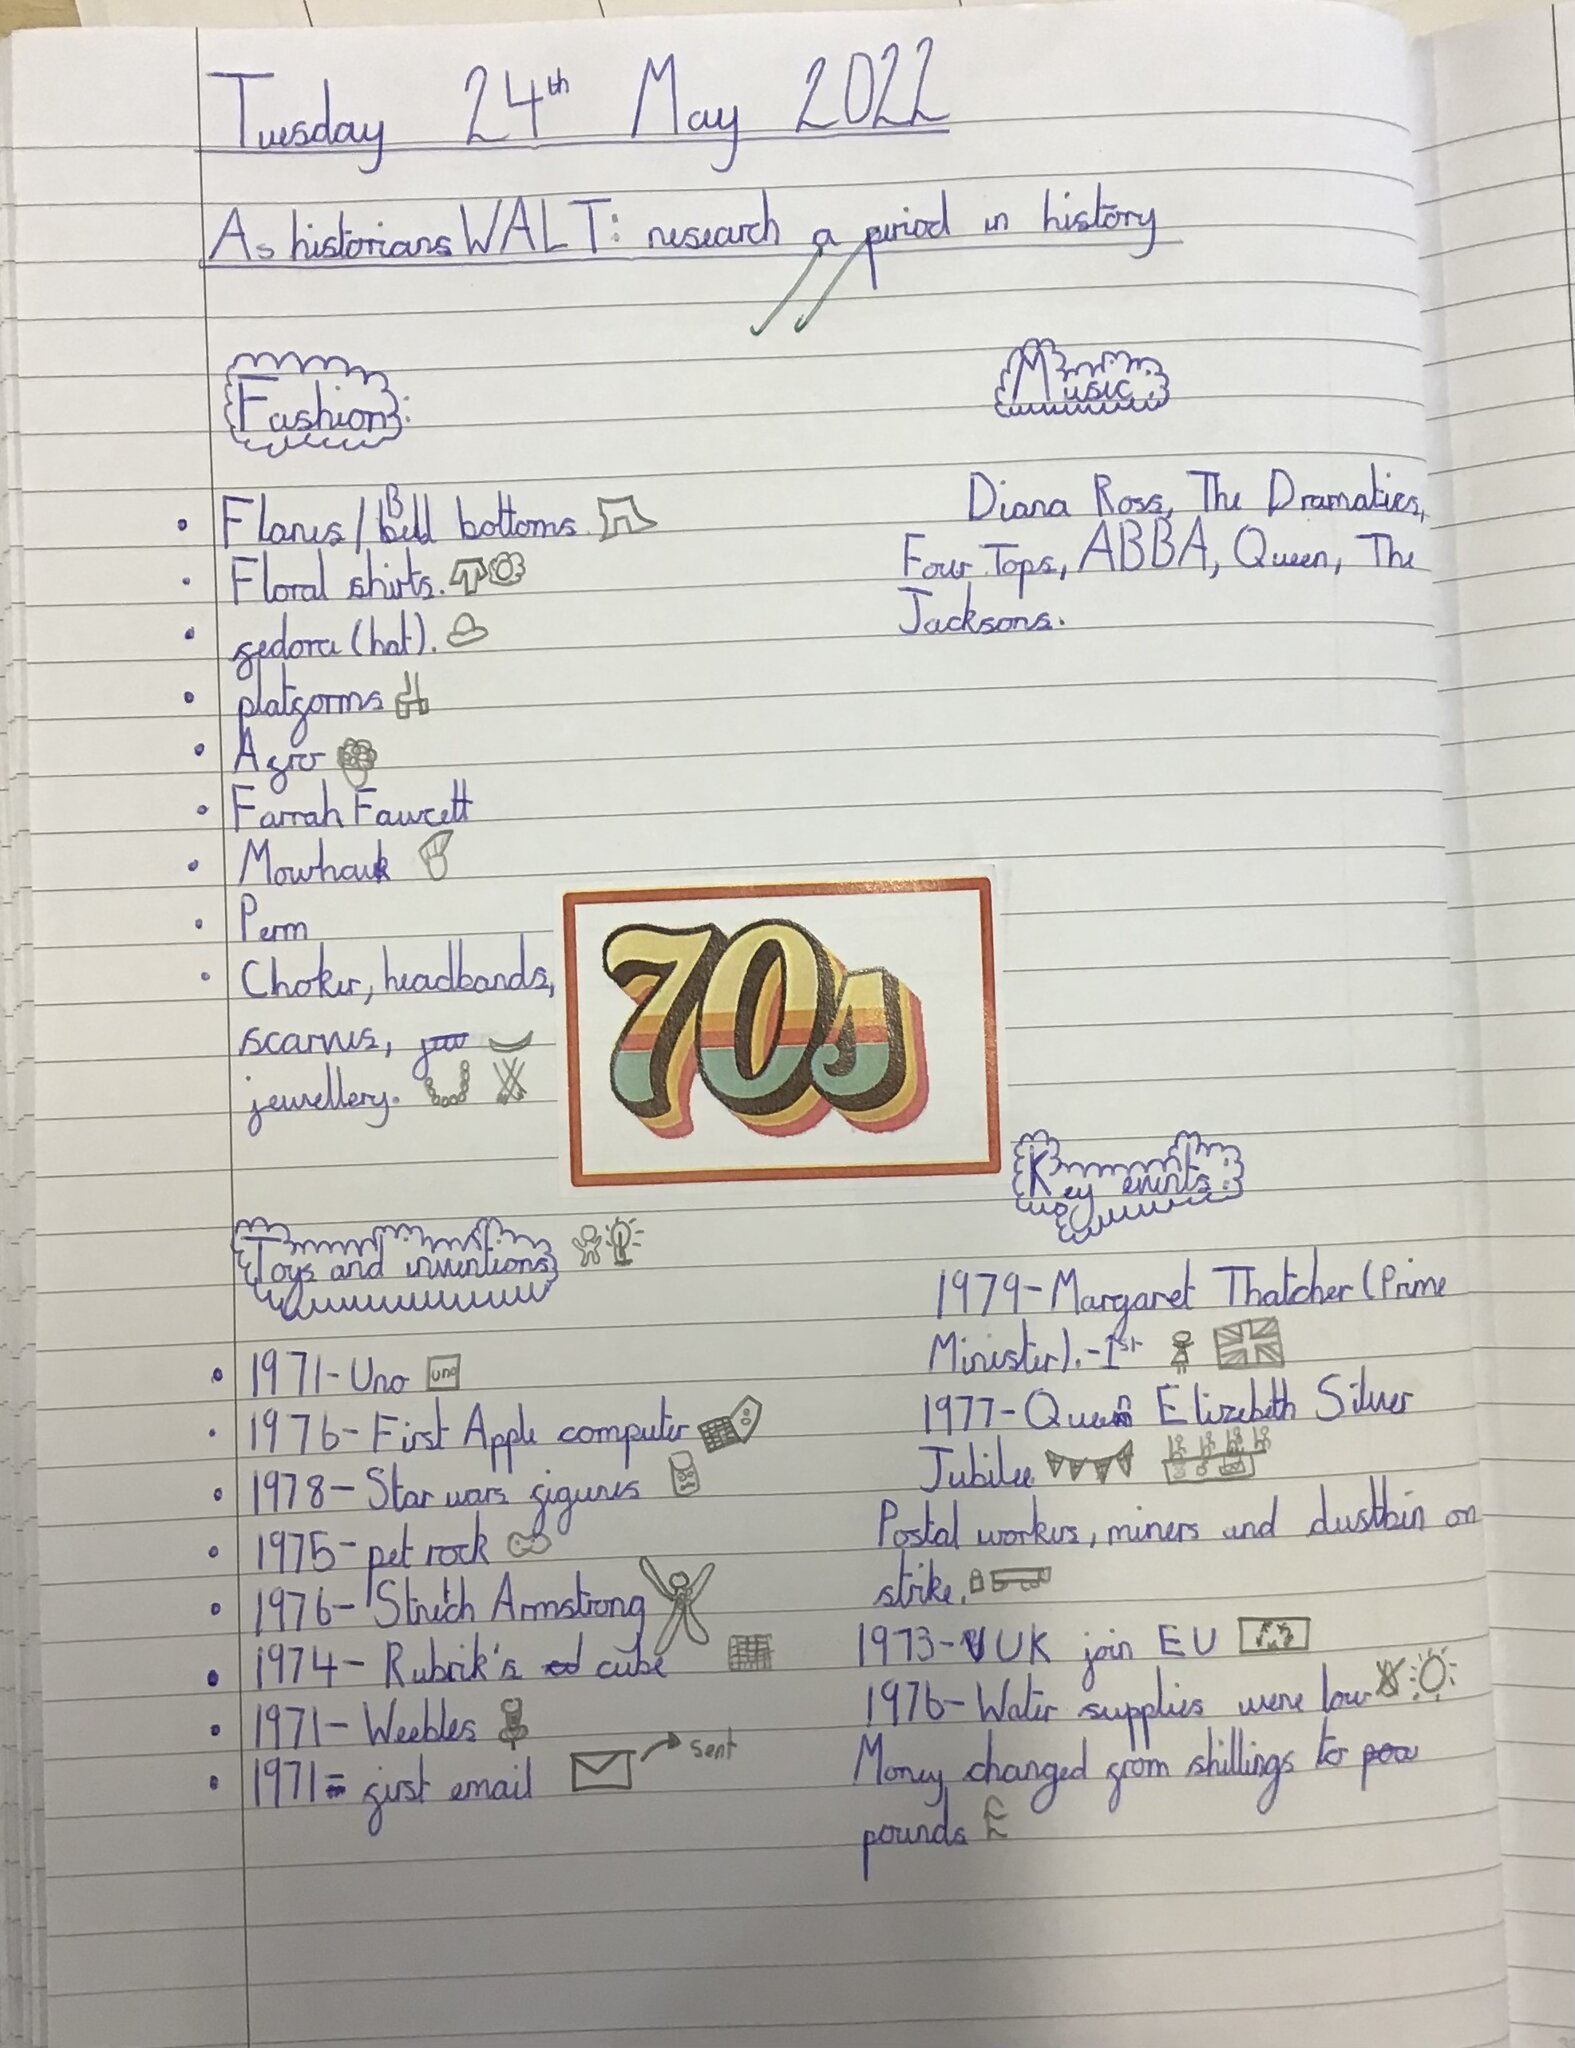 Tuesday 24th May 2022
As historians WALT: research a period in history
Fashion:
• Flares/Bell bottoms.
• Floral shirts.
• fedora (hat).
• platforms
• Afro
• Farrah Fawcett
• Mowhawk
• Perm
• Choker, headbands,
scarves,
jewellery.
Music:
Diana Ross, The Dramatics,
Four Tops, ABBA, Queen, The
Jacksons.
70s
Toys and inventions
• 1971- Uno uno
• 1976- First Apple computer
• 1978- Star wars figures
• 1975- pet rock
• 1976- Stretch Armstrong
• 1974- Rubrik's cube
• 1971- Weebles
• 1971- first email sent
Key events:
1979-Margaret Thatcher (Prime
Minister).-1st
1977-Queen Elizebeth Silver
Jubilee
Postal workers, miners and dustbin on
strike.
1973- UK join EU
1976-Water supplies were low
Money changed from shillings to
pounds £